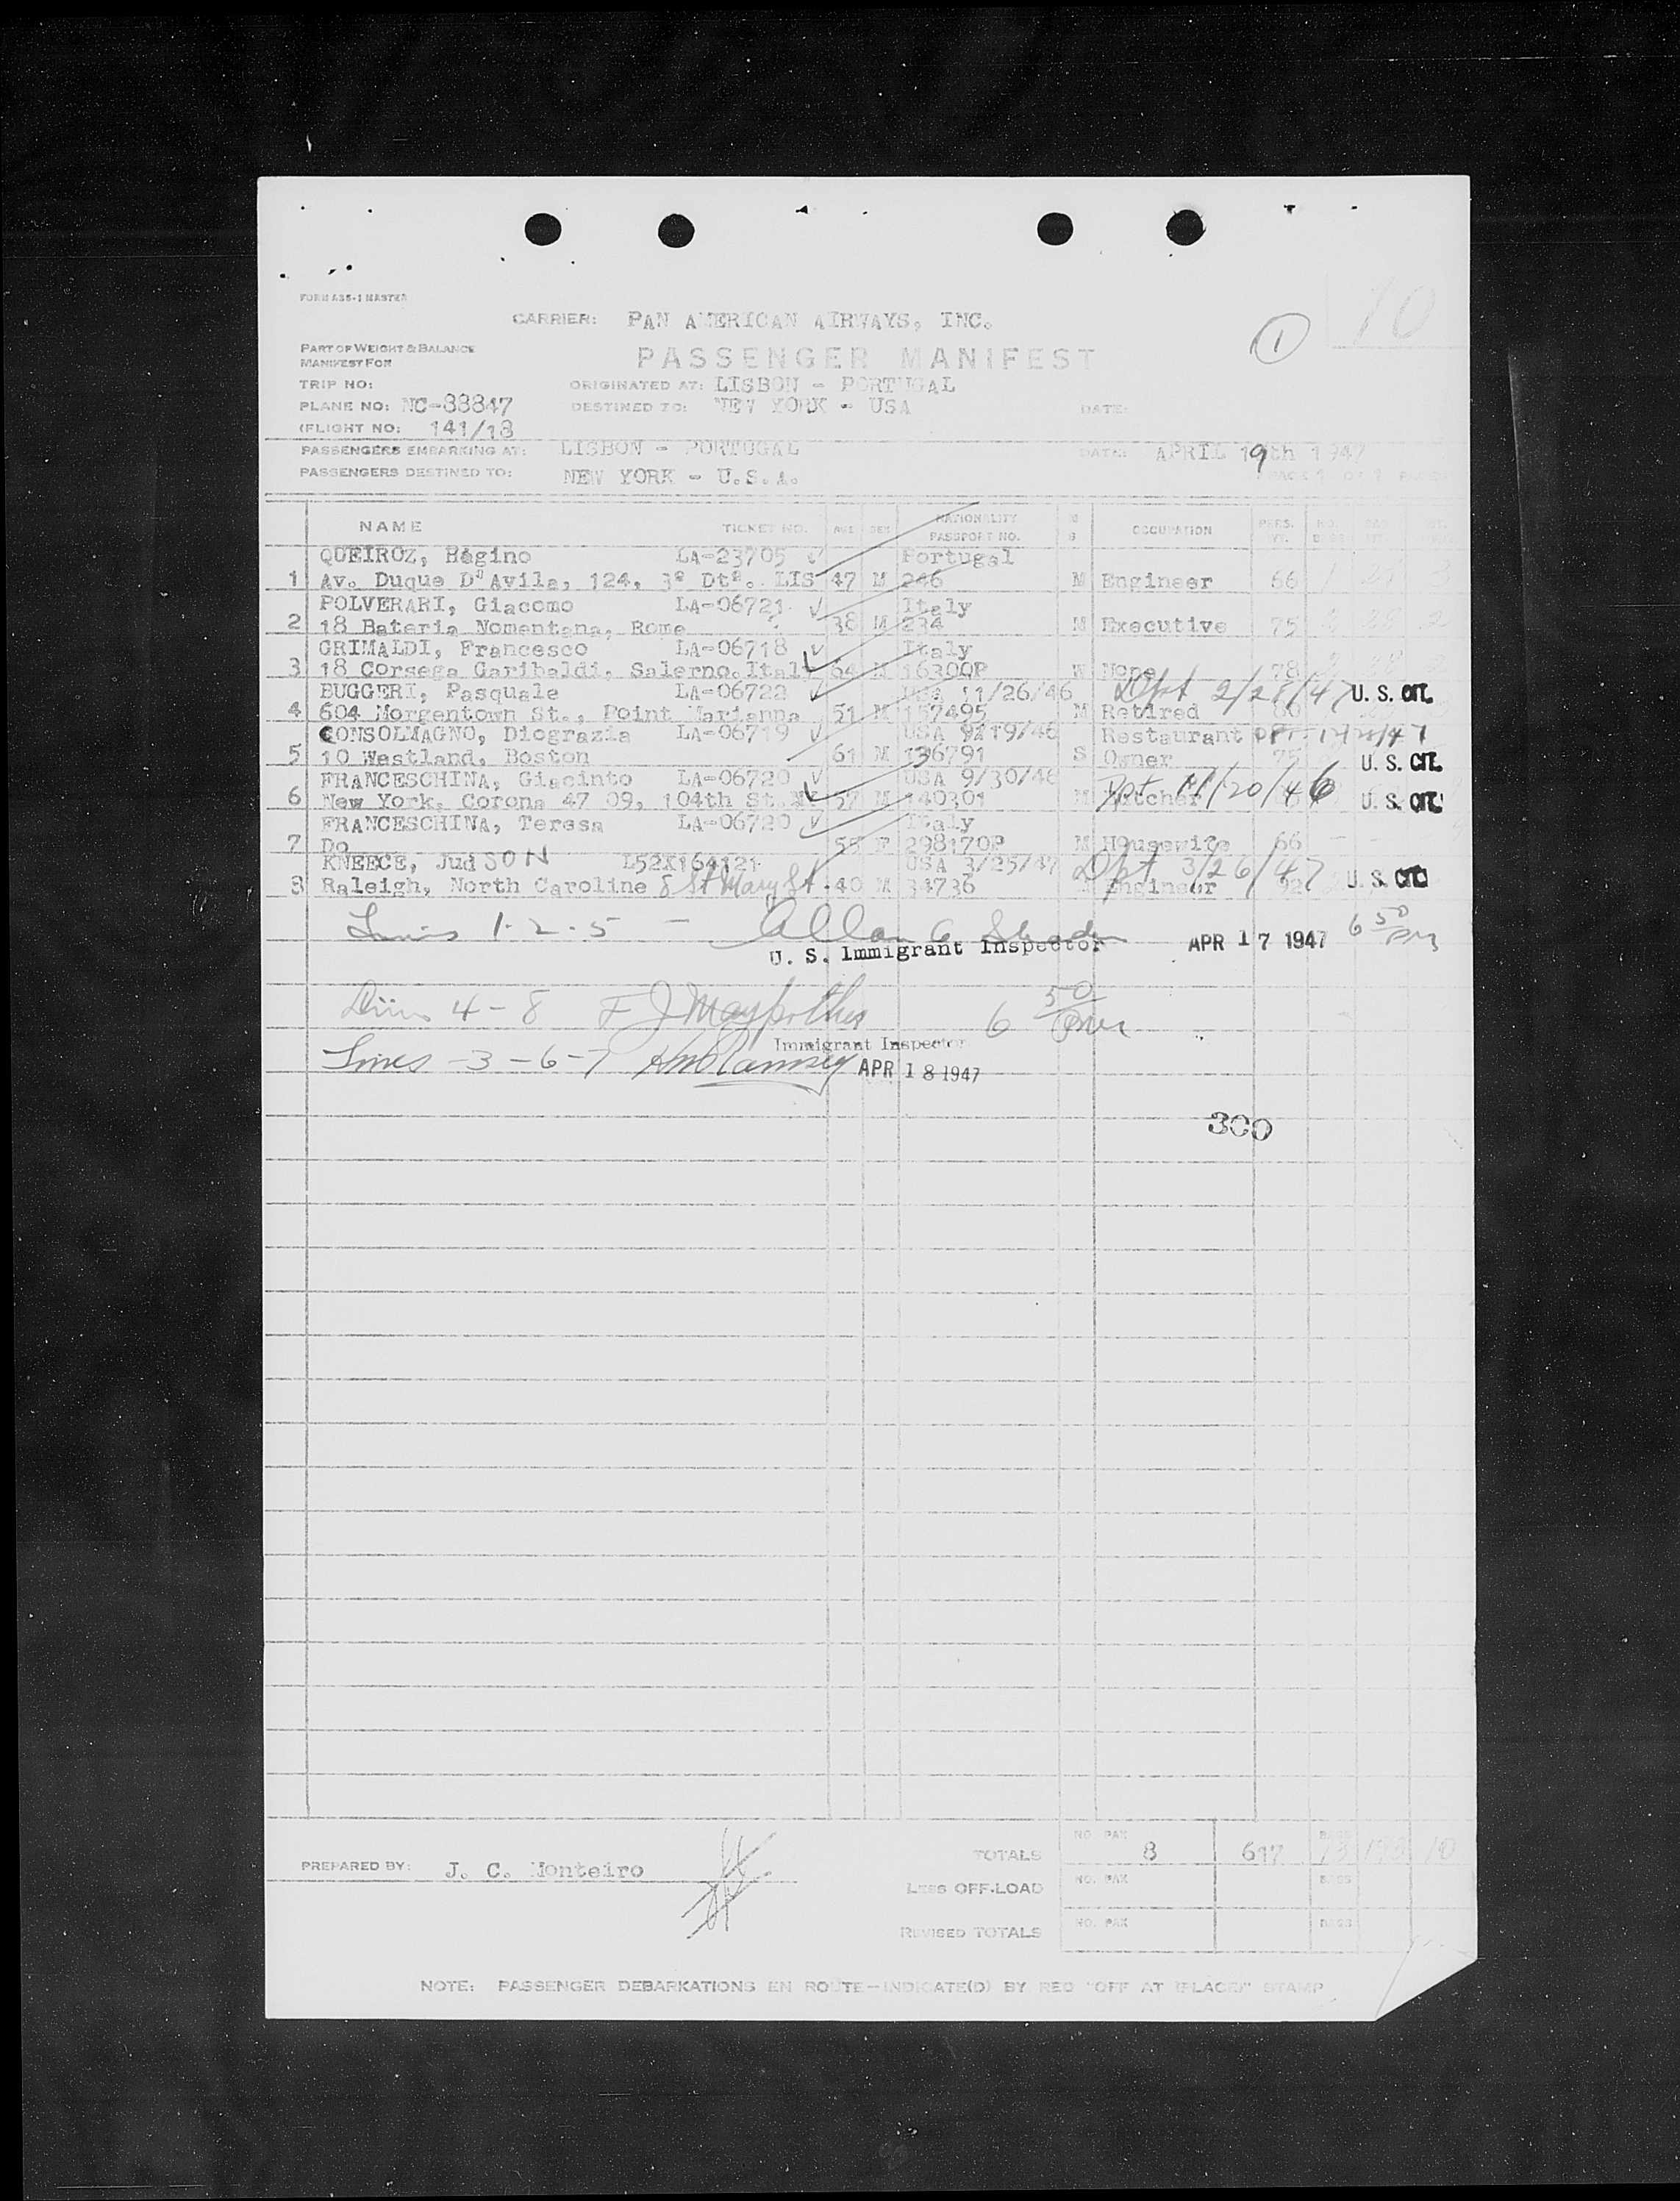 FORM A35-1 MASTER
CARRIER: PAN AMERICAN AIRWAYS, INC.
1
10
PART OF WEIGHT & BALANCE
MANIFEST FOR
PASSENGER MANIFEST
TRIP NO: ORIGINATED AT: LISBON - PORTUGAL
PLANE NO: NC-88847 DESTINED TO: NEW YORK - USA DATE:
FLIGHT NO: 141/18
PASSENGERS EMBARKING AT: LISBON - PORTUGAL DATE: APRIL 19th 1947
PASSENGERS DESTINED TO: NEW YORK - U.S.A. PAGE 1 OF 1
NAME TICKET NO. AGE SEX NATIONALITY PASSPORT NO. M S OCCUPATION PERS. WT.
QUEIROZ, Régino LA-23705 Portugal
1 Av. Duque D'Avila, 124, 3º Dtº. LIS 47 M 246 M Engineer 66
POLVERARI, Giacomo LA-06721 Italy
2 18 Bateria Nomentana, Rome 38 M 234 M Executive 75
GRIMALDI, Francesco LA-06718 Italy
3 18 Corsega Garibaldi, Salerno. Italy 64 M 16300P W None 78
BUGGERI, Pasquale LA-06722 USA 11/26/46 Dpt 2/28/47 U. S. CIT.
4 604 Morgentown St., Point Marianna 51 M 157495 M Retired 80
CONSOLMAGNO, Diograzia LA-06719 USA 9/19/46 Restaurant
5 10 Westland, Boston 61 M 136791 S Owner 75 U. S. CIT.
FRANCESCHINA, Giacinto LA-06720 USA 9/30/46 Dpt 11/20/46
6 New York, Corona 47 09, 104th St. NY 57 M 140301 M Butcher U. S. CIT.
FRANCESCHINA, Teresa LA-06720 Italy
7 Do 55 F 298170P M HOusewife 66
KNEECE, JudSON L52X164121 USA 3/25/47 Dpt 3/26/47
8 Raleigh, North Caroline 8 St Mary St. 40 M 34736 M Engineer 92 U. S. CIT
Lines 1-2-5 - Allan G
U. S. Immigrant Inspector APR 17 1947 6 50 PM
Lines 4-8 F J 6 50 PM
Immigrant Inspector
Lines -3-6-7 HM Ramsey APR 18 1947
300
TOTALS NO. PAX 8 617 BAGS
PREPARED BY: J. C. Monteiro
LESS OFF-LOAD NO. PAX BAGS
REVISED TOTALS NO. PAX BAGS
NOTE: PASSENGER DEBARKATIONS EN ROUTE—INDICATE(D) BY RED "OFF AT (PLACE)" STAMP